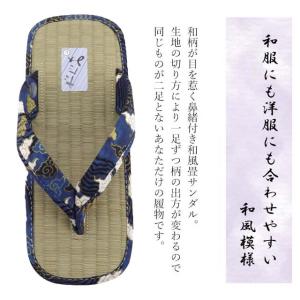 和服にも洋服にも合わせやすい
和風模様
和柄が目を惹く鼻緒付き和風畳サンダル。
生地の切り方により一足ずつ柄の出方が変わるので
同じものが二足とないあなただけの履物です。